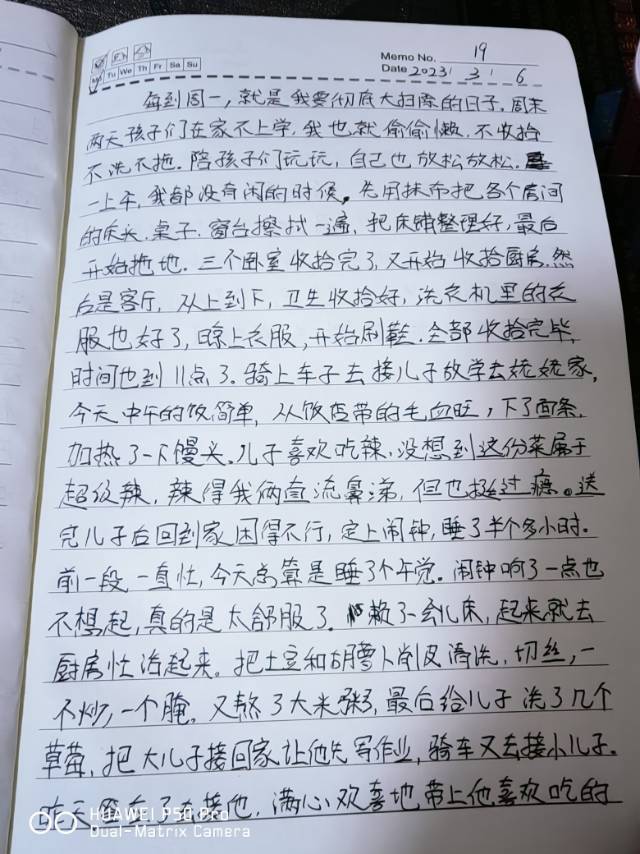 Memo No. 19
Mo Tu We Th Fr Sa Su
Date 2023 / 3 / 6
每到周一，就是我要彻底大扫除的日子。周末
两天孩子们在家不上学，我也就偷偷懒，不收拾
不洗不拖。陪孩子们玩玩，自己也放松放松。
一上午，我都没有闲的时候。先用抹布把各个房间
的床头、桌子、窗台擦拭一遍，把床铺整理好，最后
开始拖地。三个卧室收拾完了，又开始收拾厨房，然
后是客厅，从上到下，卫生收拾好，洗衣机里的衣
服也好了，晾上衣服，开始刷鞋。全部收拾完毕，
时间也到11点了。骑上车子去接儿子放学去姥姥家，
今天中午的饭简单，从饭店带的毛血旺，下了面条，
加热了一下馒头。儿子喜欢吃辣，没想到这份菜属于
超级辣，辣得我俩直流鼻涕，但也挺过瘾。送
完儿子后回到家困得不行，定上闹钟，睡了半个多小时。
前一段一直忙，今天总算是睡了个午觉。闹钟响了一点也
不想起，真的是太舒服了。赖了一会儿床，起来就去
厨房忙活起来。把土豆和胡萝卜削皮清洗，切丝，一
个炒，一个腌。又熬了大米粥，最后给儿子洗了几个
草莓，把大儿子接回家让他先写作业，骑车又去接小儿子。
昨天 了去接他，满心欢喜地带上他喜欢吃的
HUAWEI P50 Pro
Dual-Matrix Camera